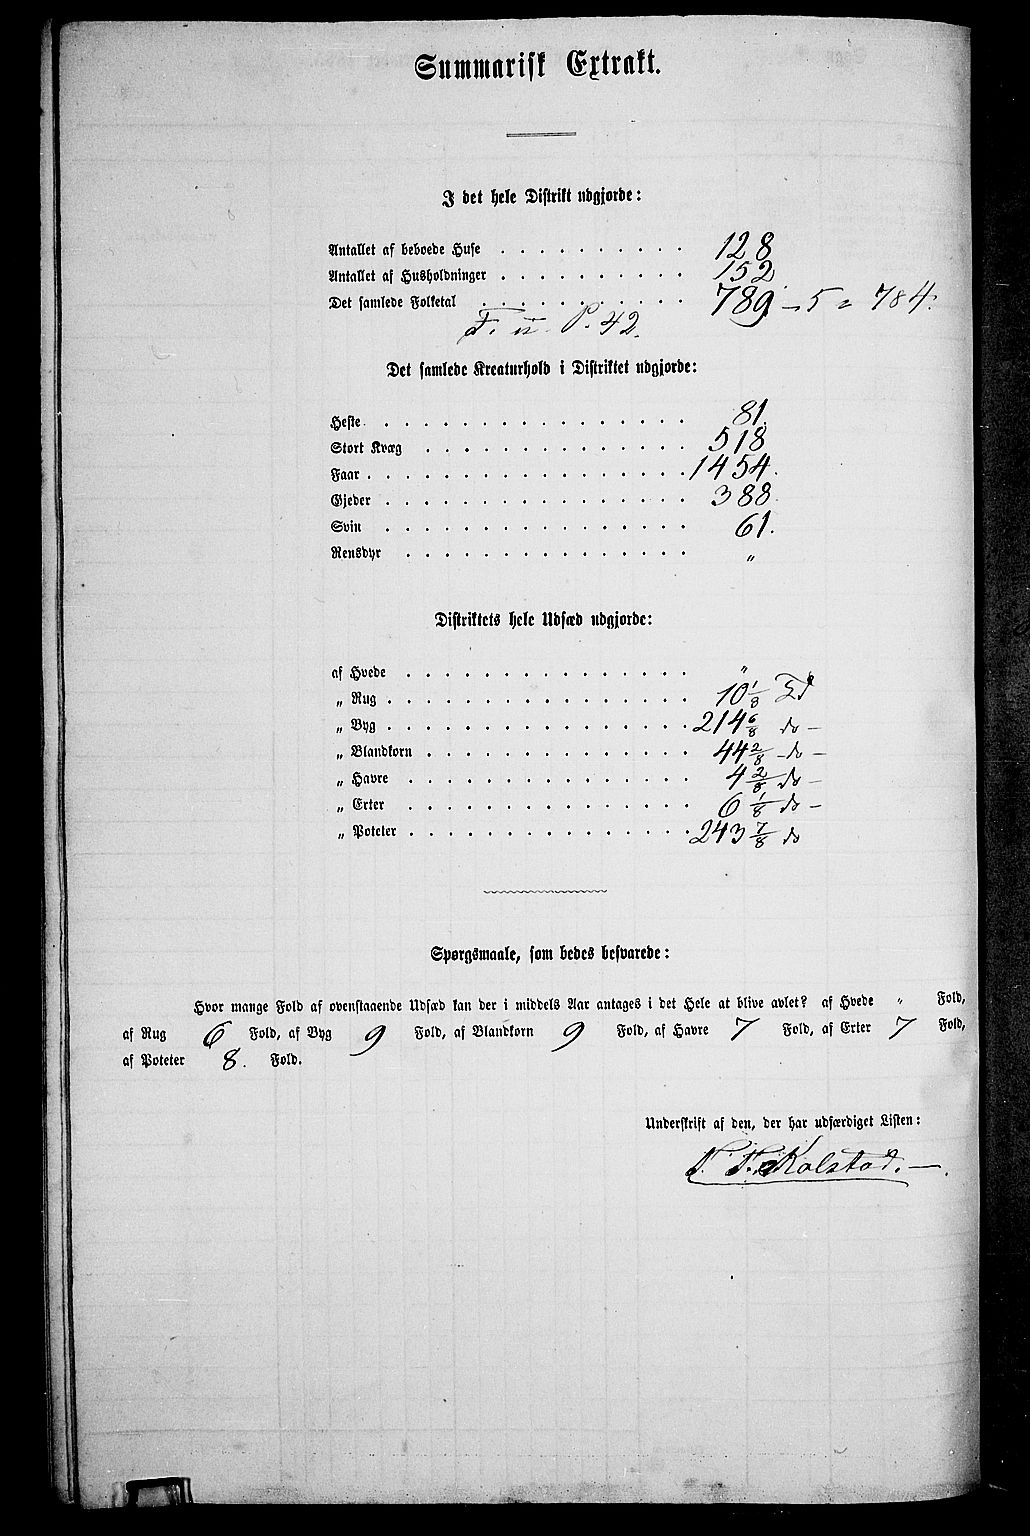 Summarisk Extrakt.
I det hele Distrikt udgjorde:
Antallet af beboede Huse . . . . . . . . . . 128
Antallet af Husholdninger . . . . . . . . . . 152
Det samlede Folketal . . . . . . . . . . . 789 – 5 = 784.
F. u. P. 42.
Det samlede Kreaturhold i Distriktet udgjorde:
Heste . . . . . . . . . . . . . . . . . 81.
Stort Kvæg . . . . . . . . . . . . . . 518
Faar . . . . . . . . . . . . . . . . . 1454.
Gjeder . . . . . . . . . . . . . . . . 388.
Svin . . . . . . . . . . . . . . . . 61.
Rensdyr . . . . . . . . . . . . . . . „
Distriktets hele Udsæd udgjorde:
af Hvede . . . . . . . . . . . . . . . „
„ Rug . . . . . . . . . . . . . . . . 10 1/8 Td
„ Byg . . . . . . . . . . . . . . . . 214 6/8 do –
„ Blandkorn . . . . . . . . . . . . . . 44 2/8 – do –
„ Havre . . . . . . . . . . . . . . . 4 2/8 do –
„ Erter . . . . . . . . . . . . . . . 6 1/8 do –
„ Poteter . . . . . . . . . . . . . . . 243 7/8 do
Spørgsmaale, som bedes besvarede:
Hvor mange Fold af ovenstaaende Udsæd kan der i middels Aar antages i det Hele at blive avlet? af Hvede „ Fold,
af Rug 6 Fold, af Byg 9 Fold, af Blandkorn 9 Fold, af Havre 7 Fold, af Erter 7 Fold,
af Poteter 8. Fold.
Underskrift af den, der har udfærdiget Listen:
Kolstad. —.